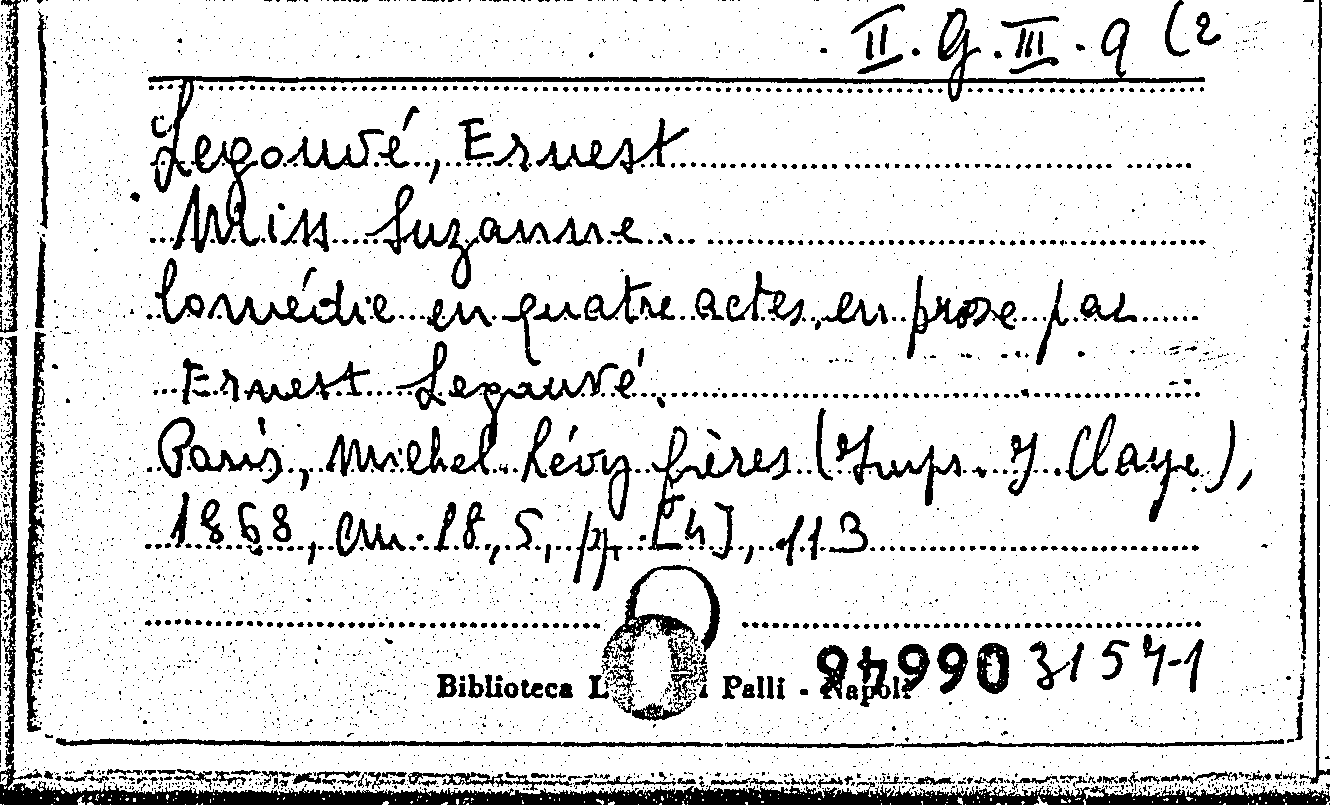 II. G. III. 9 (2
Legouvé, Ernest
Miss Suzanne.
Comédie en quatre actes, en prose par
Ernest Legouvé.
Paris, Michel Lévy frères (Imp. J. Claye),
1868, cm. 18,5, pp. [4], 113
Biblioteca Palli - Napoli
31571